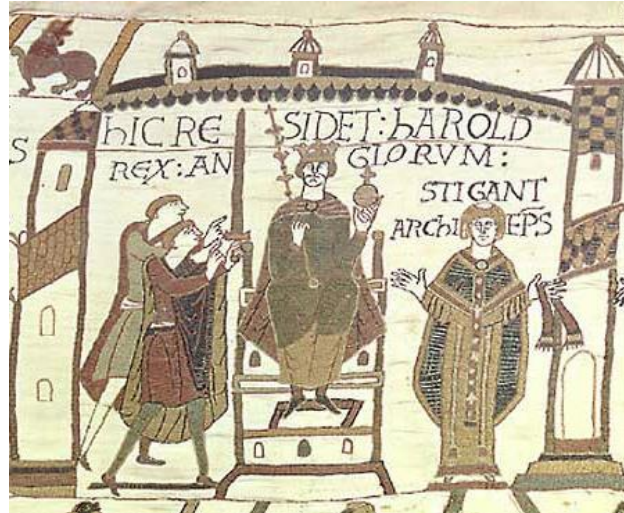 S
HIC RE SIDET: HAROLD
REX: AN GLORVM:
STIGANT
ARCHI EP̄S